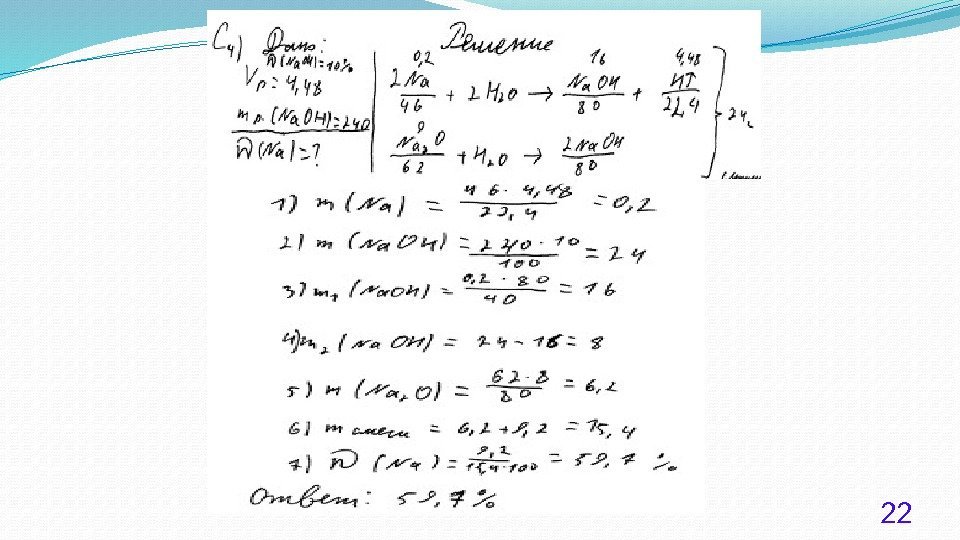 C4) Дано: Решение
ω(NaOH)=10%
Vл=4,48
mр(NaOH)=240
ω(Na)=?
0,2 16 4,48
2Na + 2H2O → NaOH +
46 80 22,4
Na2O + H2O → 2NaOH
62 80
1) m(Na) = 46·4,48 / 22,4 = 0,2
2) m(NaOH) = 240·10 / 100 = 24
3) m1(NaOH) = 0,2·80 / 40 = 16
4) m2(NaOH) = 24-16 = 8
5) m(Na2O) = 62·8 / 80 = 6,2
6) m смеси = 6,2+9,2 = 15,4
7) ω(Na) = 9,2 / 15,4·100 = 59,7%
Ответ: 59,7%
22